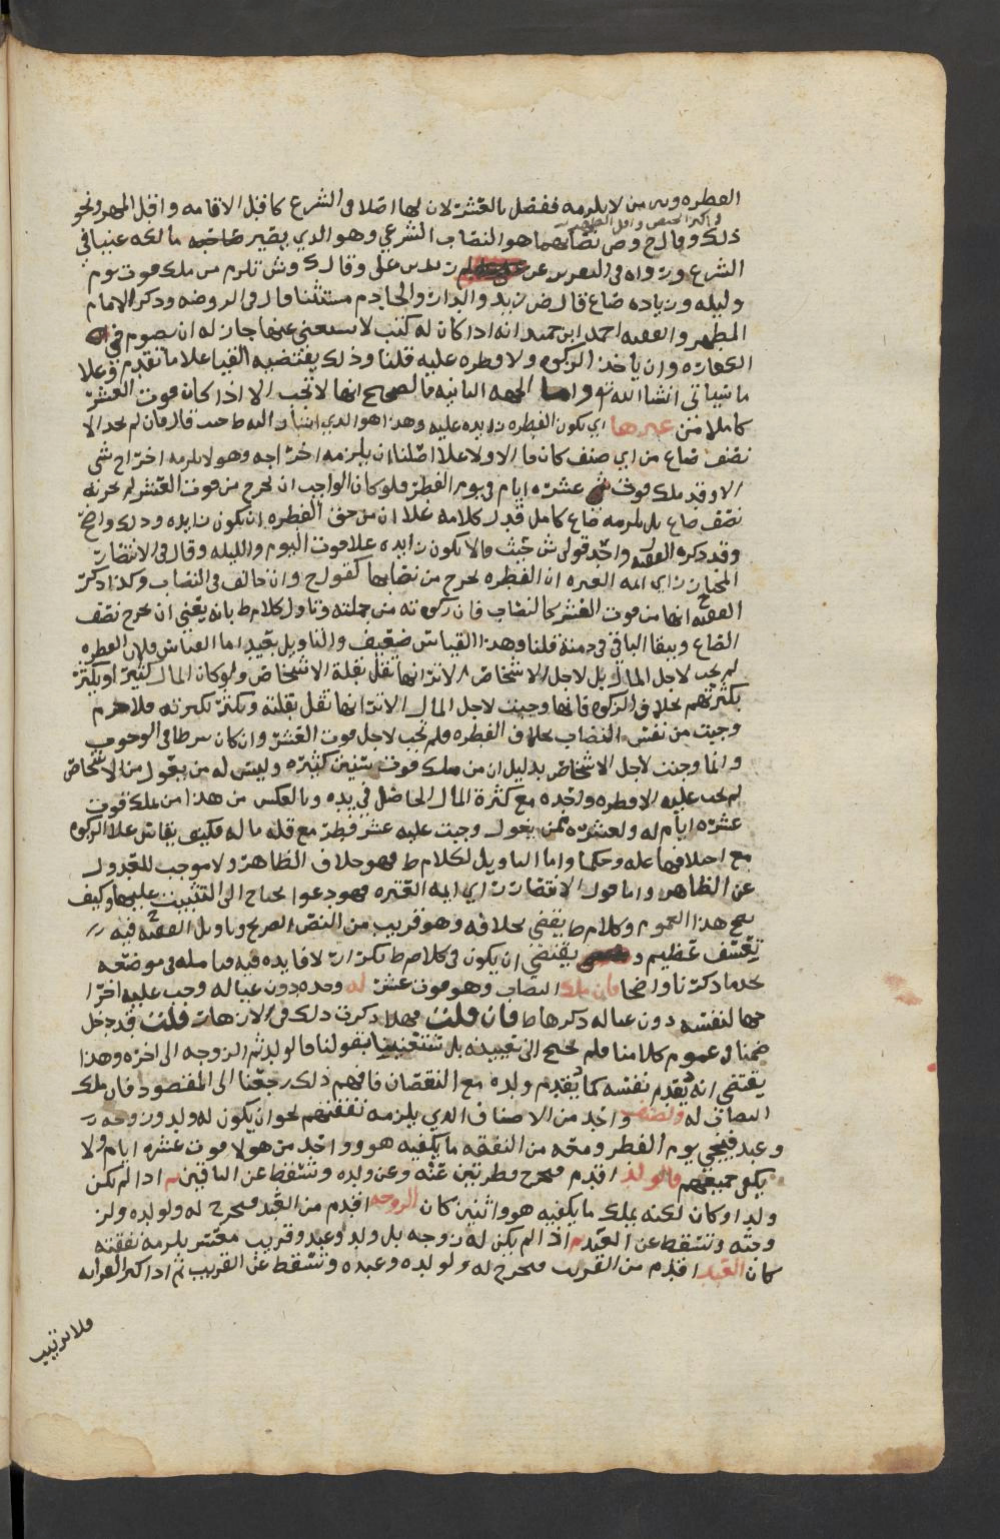 الفطره وبين من لا يلزمه ففصل بالعشر لان لها اصلا في الشرع كاقل الاقامه واقل المهر ونحو
واكثر الحيض واقل الطهر
ذلك وقال ح وص نصابهما هو النصاب الشرعي وهو الذي يصير صاحبه مالكه غنيا في
الشرع ورواه في التقرير عن زيد بن علي وقال ك وش تلزم من ملك قوت يوم
وليله وزياده صاع قال ض زيد والدار والخادم مستثنا قال في الروضه وذكر الامام
المطهر والفقيه احمد ابن حميد انه اذا كان له كتب لا يستغني عنها جاز له ان يصوم في
الكفاره وان ياخذ الزكوه ولا فطره عليه قلنا وذلك يقتضيه القيا علا ما تقدم وعلا
ما سياتي انشا الله واما الجهه الثانيه فالصحيح انها لا تجب الا اذا كان قوت العشر
كاملا من غيرها اي يكون الفطره زايده عليه وهذا هو الذي اشار اليه ط حيث قال فان لم يجد الا
نصف صاع من اي صنف كان فالاولا علا اصلنا ان يلزمه اخراجه وهو لا يلزمه اخراج شي
الا وقد ملك قوت عشره ايام في يوم الفطر فلو كان الواجب ان يخرج من قوت العشر لم يجزئه
نصف صاع بل يلزمه صاع كامل فدل كلامه علا ان من حق الفطره ان يكون زايده وذلك واضح
وقد ذكره الفقيه واحد قولي ش حيث قالا يكون زايده علا قوت اليوم والليله وقال في الانتصار
المختار راي ايمه العتره ان الفطره تخرج من نصابها كقول ح وان خالف في النصاب وكذا ذكر
الفقيه ح انها من قوت العشر كالنصاب فان زكوته من جملته وتاول كلام ط بانه يعني ان يخرج نصف
الصاع ويبقا الباقي في ذمته قلنا وهذا القياس ضعيف والتاويل بعيد اما القياس فلان الفطره
لم تجب لاجل المال بل لاجل الاشخاص الا ترا انها تقل بقلة الاشخاص ولو كان المال كثير او يكثر
بكثرتهم بخلاف الزكوه فانها وجبت لاجل المال الا ترا انها تقل بقلته وتكثر بكثرته فلا جرم
وجبت من نفس النصاب بخلاف الفطره فلم تجب لاجل قوت العشر وان كان شرطا في الوجوب
وانما وجبت لاجل الاشخاص بدليل ان من ملك قوت سنين كثيره وليس له من يعول من الاشخاص
لم تجب عليه الا فطره واحده مع كثرة المال الحاصل في يده وبالعكس من هذا من ملك قوت
عشره ايام له ولعشره ممن يعول وجبت عليه عشر فطر مع قله ماله فكيف يقاس علا الزكوه
مع اختلافهما عله وحكما واما التاويل لكلام ط فهو خلاف الظاهر ولا موجب للعدول
عن الظاهر واما قول الانتصار راي ايمه العتره فهو دعوا يحتاج الى التثبيت عليها وكيف
يصح هذا العموم وكلام ط يقضي بخلافه وهو قريب من النص الصريح وتاويل الفقيه ح فيه
تعسف عظيم و يقتضي ان يكون في كلام ط تكرار لا فايده فيه فتامله في موضعه
تجد ما ذكرنا واضحا فان ملك النصاب وهو قوت عشر له وحده دون عياله وجب عليه اخرا
جها لنفسه دون عياله ذكره ط فان قلت فهلا ذكرت ذلك في الازهار قلت قد دخل
ضمنا في عموم كلامنا فلم نحتج الى تعيينه بل بقولنا فالولد ثم الزوجه الى اخره وهذا
يقتضي انه يقدم نفسه كما يقدم ولده مع النقصان فافهم ذلك رجعنا الى المقصود فان ملك
النصاب له ولصنف واحد من الاصناف الذي يلزمه نفقتهم نحو ان يكون له ولد وزوجه
وعبد فيجي يوم الفطر ومعه من النفقه ما يكفيه هو وواحد من هولا قوت عشره ايام ولا
يكفي جميعهم فالولد اقدم فيخرج فطرتين عنه وعن ولده وتسقط عن الباقين ثم اذا لم يكن
ولد او كان لكنه يملك ما يكفيه هو واثنين كان الزوجه اقدم من العبد فيخرج له ولولده ولز
وجته وتسقط عن العبد ثم اذا لم يكن له زوجه بل ولد وعبد وقريب معسر يلزمه نفقته
كان العبد اقدم من القريب فيخرج له ولولده وعبده وتسقط عن القريب ثم اذا كثر القرابه
فلا ترتيب